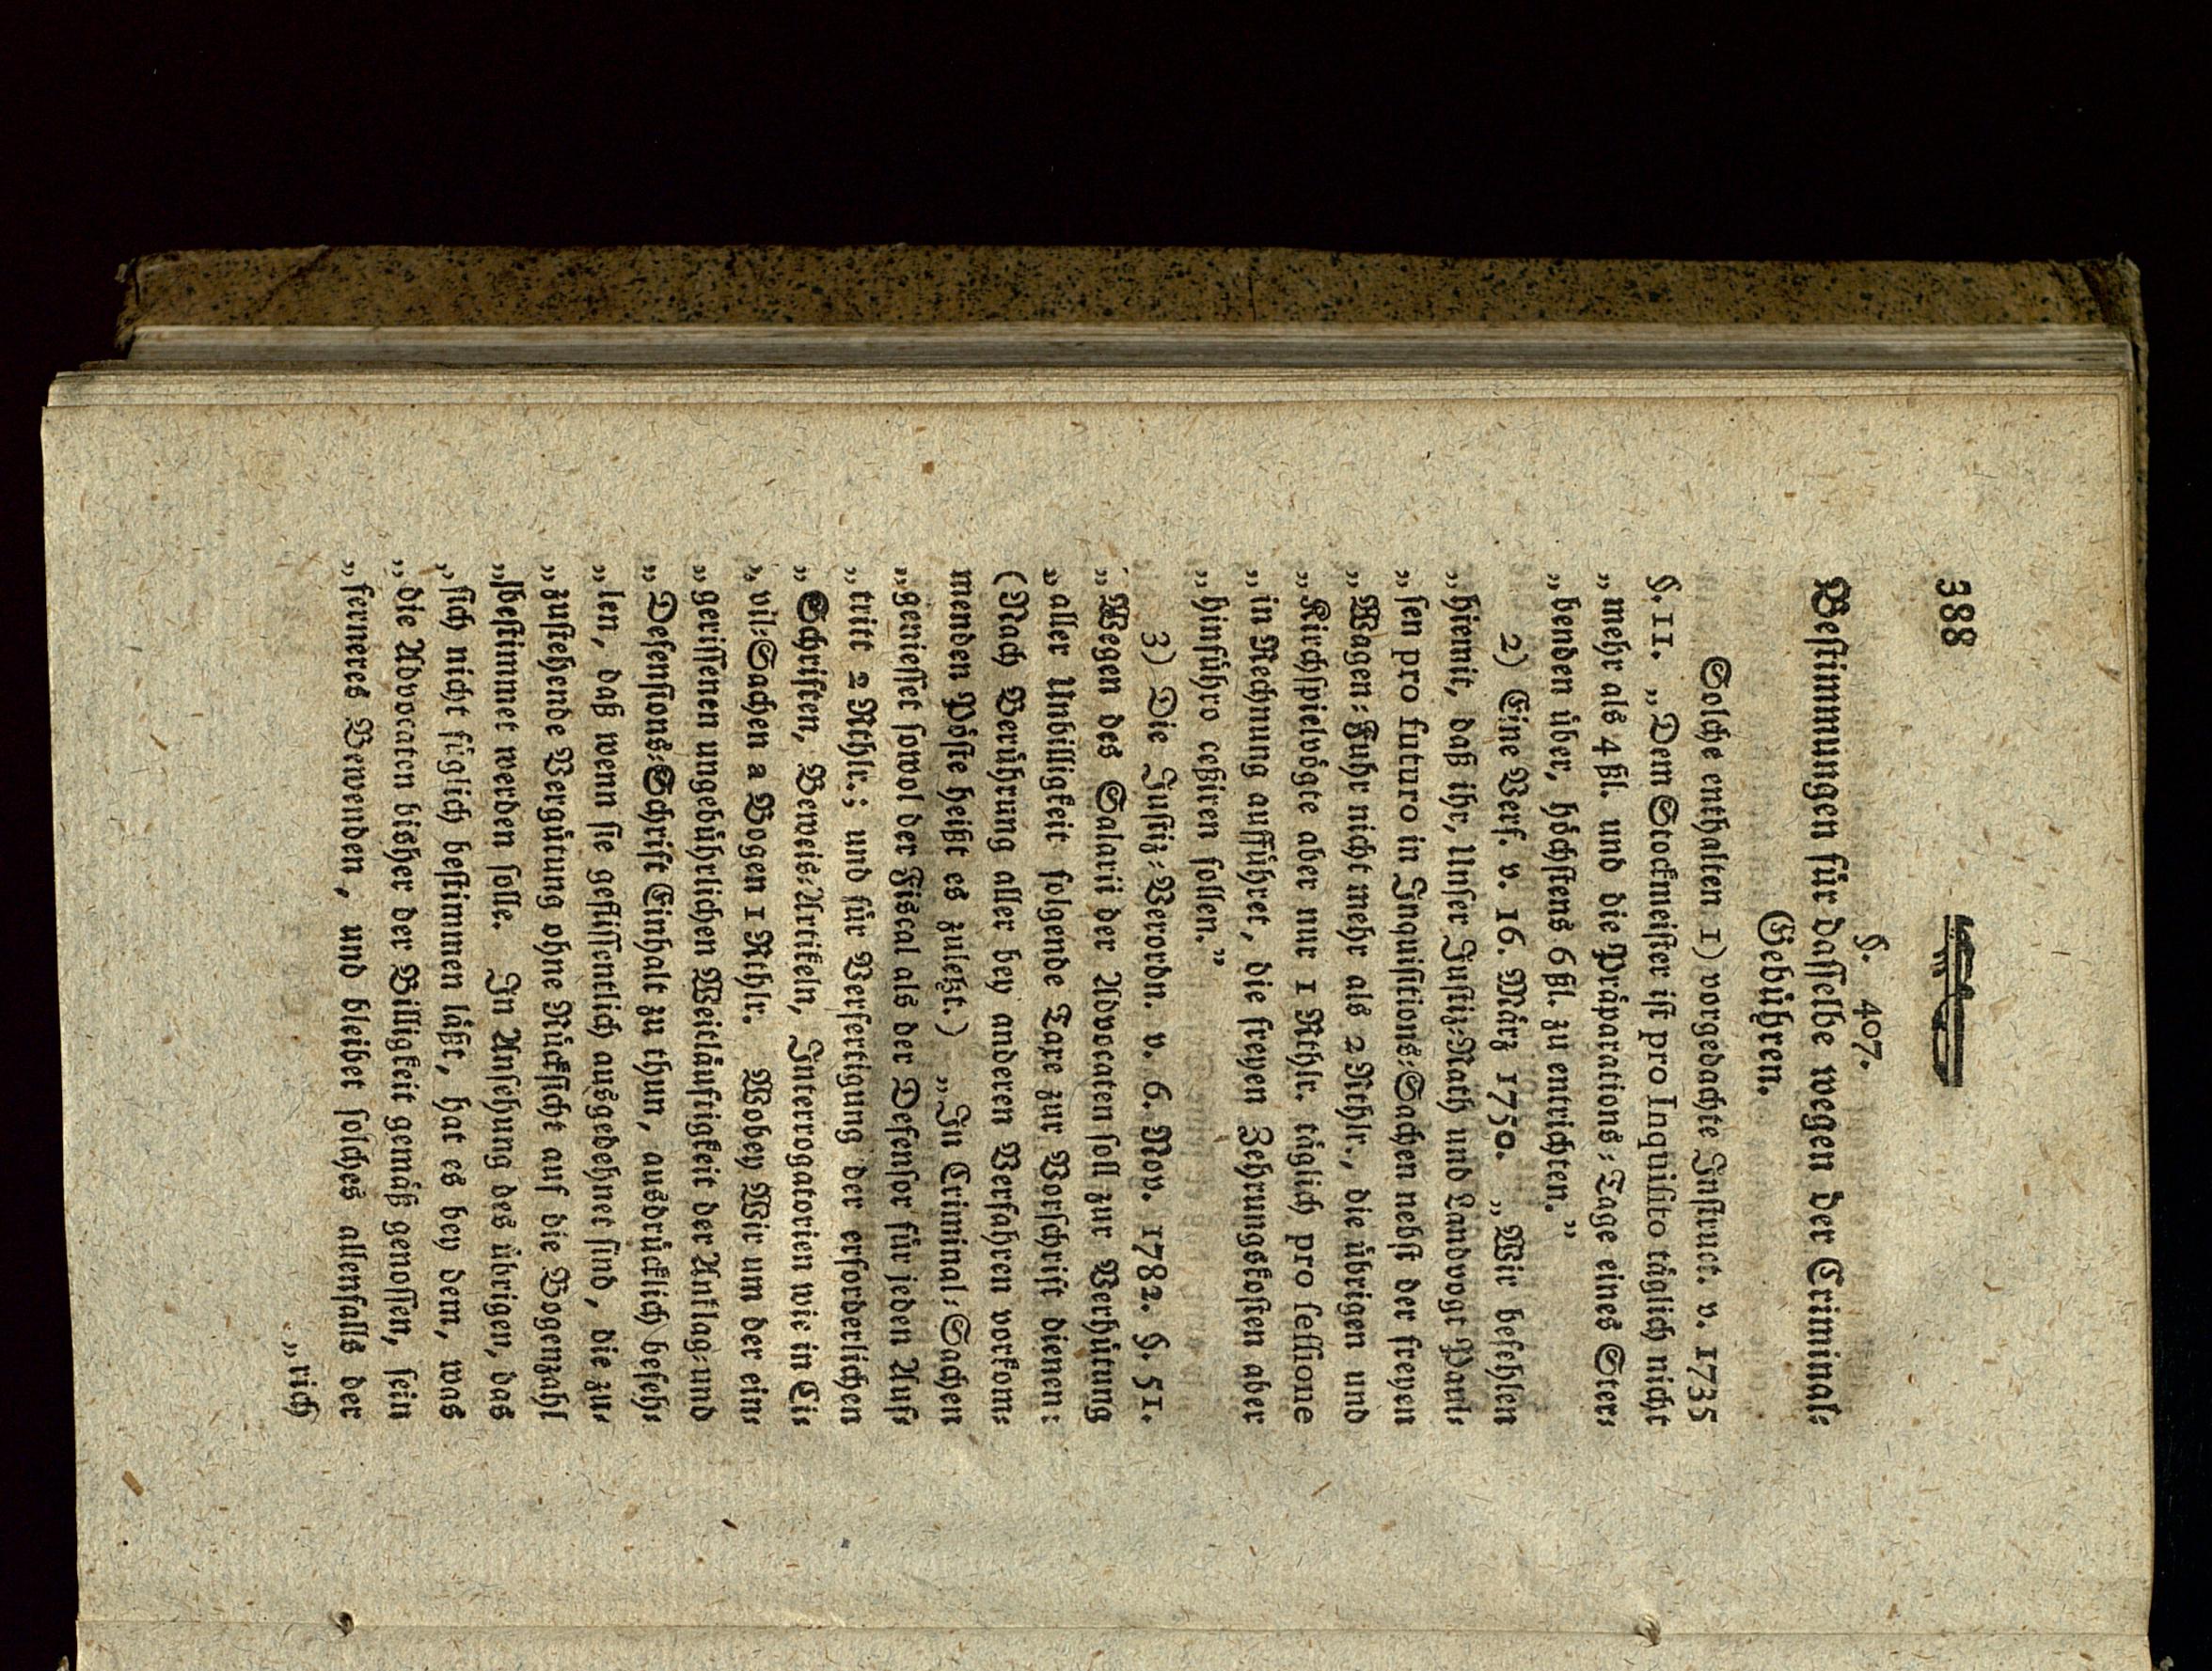 388
§. 407.
Beſtimmungen für daſſelbe wegen der Criminal⸗
Gebühren.
Solche enthalten 1) vorgedachte Inſtruct. v. 1735
§. 11. „Dem Stockmeiſter iſt pro Inquiſito täglich nicht
„mehr als 4 ßl. und die Präparations⸗Tage eines Ster⸗
„benden über, höchſtens 6 ßl. zu entrichten.”
2) Eine Verf. v. 16. März 1750. „Wir befehlen
„hiemit, daß ihr, Unſer Juſtiz⸗Rath und Landvogt Paul⸗
„ſen pro futuro in Inquiſitions⸗Sachen nebſt der freyen
„Wagen⸗Fuhr nicht mehr als 2 Rthlr., die übrigen und
„Kirchſpielvögte aber nur 1 Rthlr. täglich pro ſeſſione
„in Rechnung aufführet, die freyen Zehrungskoſten aber
„hinführo ceßiren ſollen.”
3) Die Juſtiz⸗Verordn. v. 6. Nov. 1782. §. 51.
„Wegen des Salarii der Advocaten ſoll zur Verhütung
„aller Unbilligkeit folgende Taxe zur Vorſchrift dienen:
(Nach Berührung aller bey anderen Verfahren vorkom⸗
menden Pöſte heißt es zuletzt.) „In Criminal⸗Sachen
„genieſſet ſowol der Fiscal als der Defenſor für jeden Auf⸗
„tritt 2 Rthlr.; und für Verfertigung der erforderlichen
„Schriften, Beweis⸗Artikeln, Interrogatorien wie in Ci⸗
„vil⸗Sachen a Bogen 1 Rthlr. Wobey Wir um der ein⸗
„geriſſenen ungebührlichen Weitläuftigkeit der Anklag⸗und
„Defenſions⸗Schrift Einhalt zu thun, ausdrücklich befeh⸗
„len, daß wenn ſie gefliſſentlich ausgedehnet ſind, die zu⸗
„zuſtehende Vergütung ohne Rückſicht auf die Bogenzahl
„beſtimmet werden ſolle. In Anſehung des übrigen, das
„ſich nicht füglich beſtimmen läßt, hat es bey dem, was
„die Advocaten bisher der Billigkeit gemäß genoſſen, ſein
„ferneres Bewenden, und bleibet ſolches allenfalls der
„rich